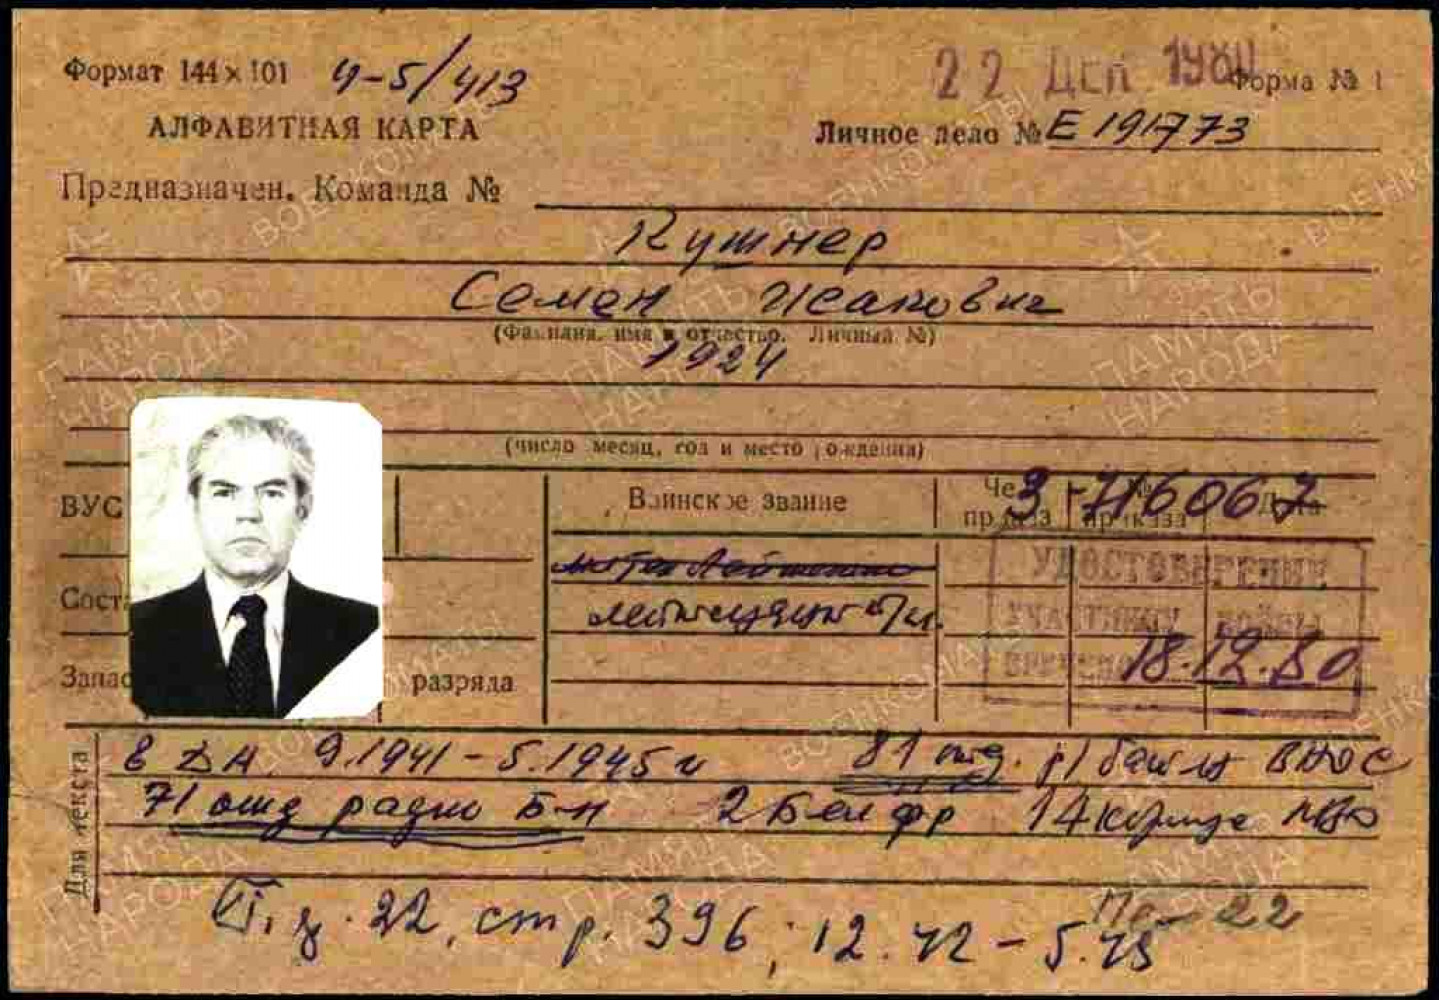 Формат 144×101 4-5/413
22 ДЕК 1980 Форма № 1
АЛФАВИТНАЯ КАРТА
Личное дело № Е 191773
Предназначен. Команда №
Кушнер
Семен Исакович
(Фамилия, имя и отчество. Личный №)
1924
(число месяц, год и место рождения)
ВУС
Воинское звание
З-716067
УДОСТОВЕРЕНИЕ
Сост
лейтенант
УЧАСТНИКА ВОЙНЫ
Запас разряда
18.12.80
Для текста
в ДА 9.1941-5.1945г 81 отд. р/бат-н ВНОС
71 отд радио Б-н 2 Бел фр 14 корпус ПВО
VI, 22, стр. 396, 12.42-5.45
22
ПАМЯТЬ НАРОДА
ВОЕНКОМАТЫ